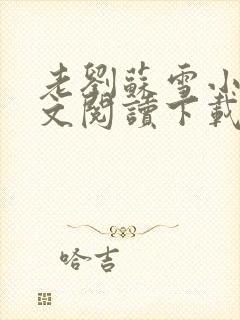 老劉蘇雪小
文閱讀下載
哈吉